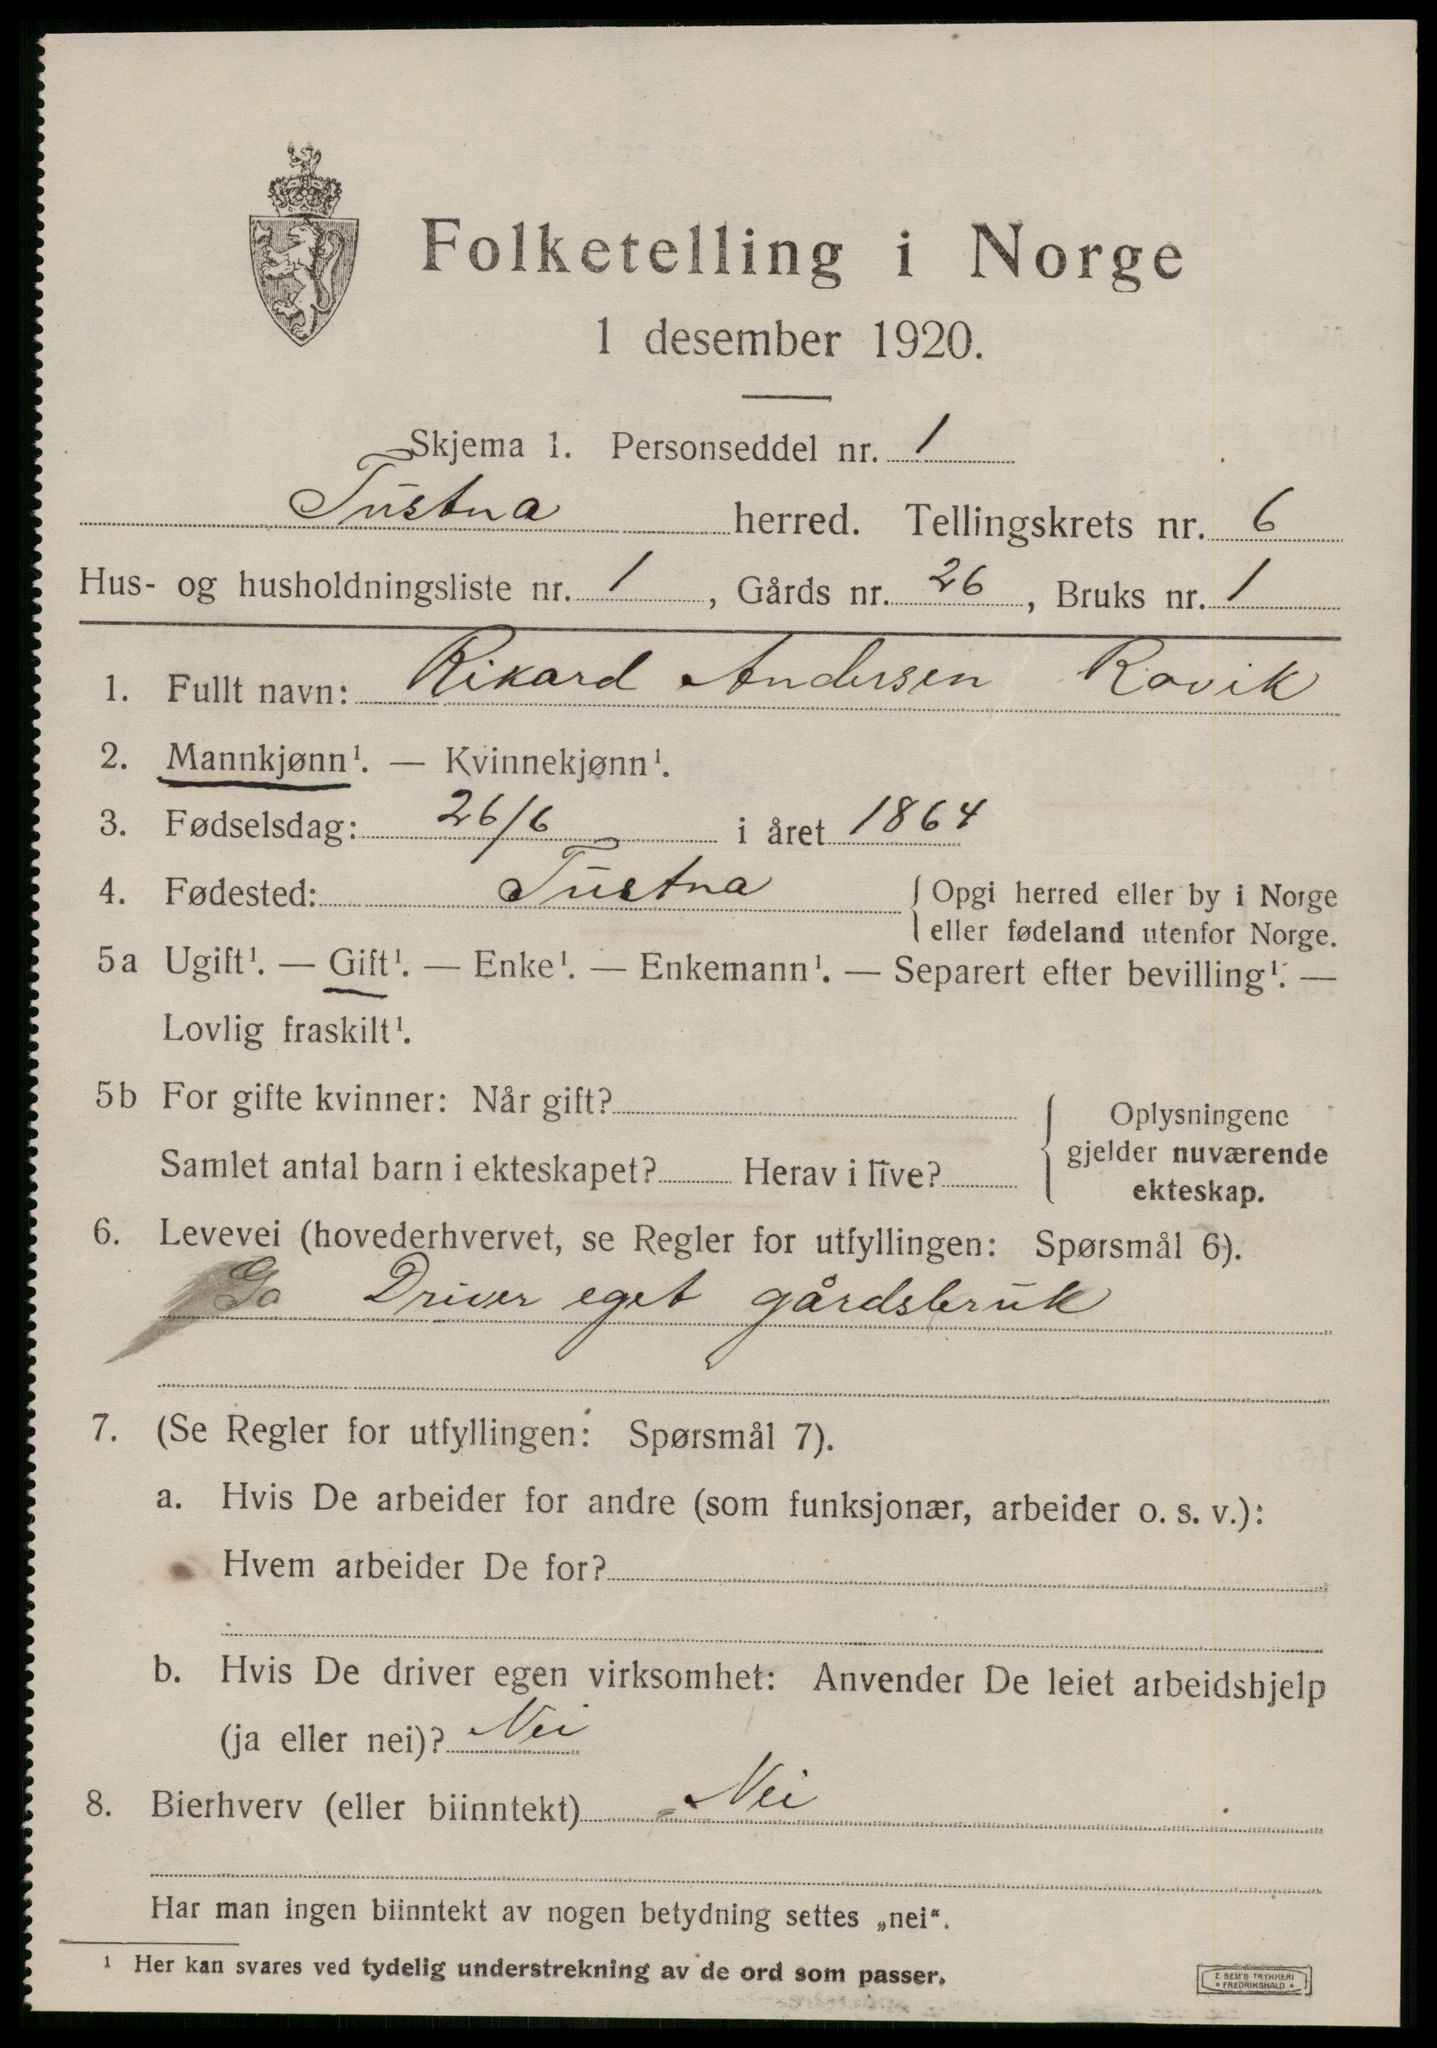 Folketelling i Norge
1 desember 1920.
Skjema 1. Personseddel nr. 1
Tustna herred. Tellingskrets nr. 6
Hus- og husholdningsliste nr. 1, Gårds nr. 26, Bruks nr. 1
1. Fullt navn: Rikard Andersen Rovik
2. Mannkjønn¹. — Kvinnekjønn¹.
3. Fødselsdag: 26/6 i året 1864
4. Fødested: Tustna { Opgi herred eller by i Norge
eller fødeland utenfor Norge.
5a Ugift¹. — Gift¹. — Enke¹. — Enkemann¹. — Separert efter bevilling¹. —
Lovlig fraskilt¹.
5b For gifte kvinner: Når gift?
Samlet antal barn i ekteskapet? Herav i live?
{ Oplysningene
gjelder nuværende
ekteskap.
6. Levevei (hovederhvervet, se Regler for utfyllingen: Spørsmål 6).
Driver eget gårdsbruk
7. (Se Regler for utfyllingen: Spørsmål 7).
a. Hvis De arbeider for andre (som funksjonær, arbeider o. s. v.):
Hvem arbeider De for?
b. Hvis De driver egen virksomhet: Anvender De leiet arbeidshjelp
(ja eller nei)? Nei
8. Bierhverv (eller biinntekt) Nei
Har man ingen biinntekt av nogen betydning settes „nei“.
¹ Her kan svares ved tydelig understrekning av de ord som passer.
E. SEM'S TRYKKERI
FREDRIKSHALD